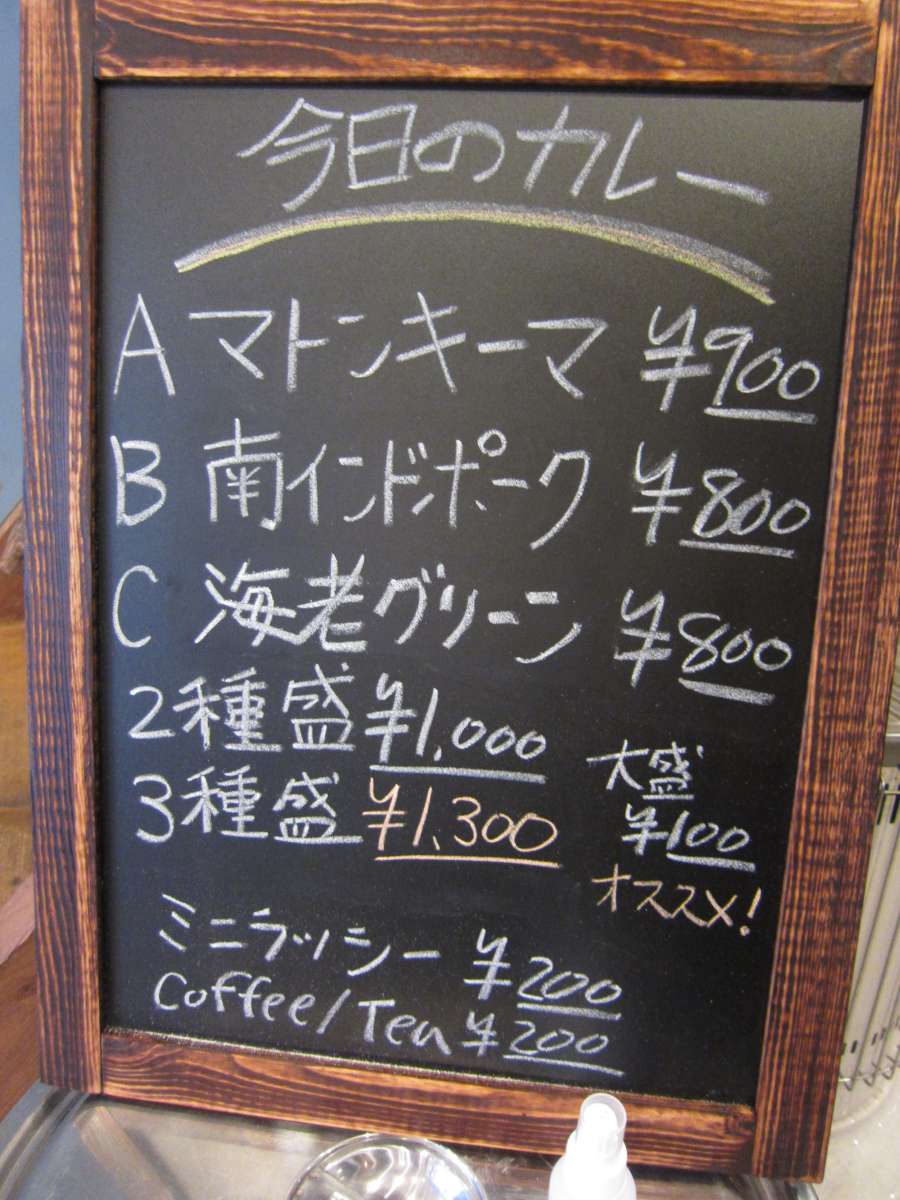 今日のカレー
A マトンキーマ ¥900
B 南インドポーク ¥800
C 海老グリーン ¥800
2種盛 ¥1,000
3種盛 ¥1,300
大盛
¥100
オススメ!
ミニラッシー ¥200
Coffee/Tea ¥200